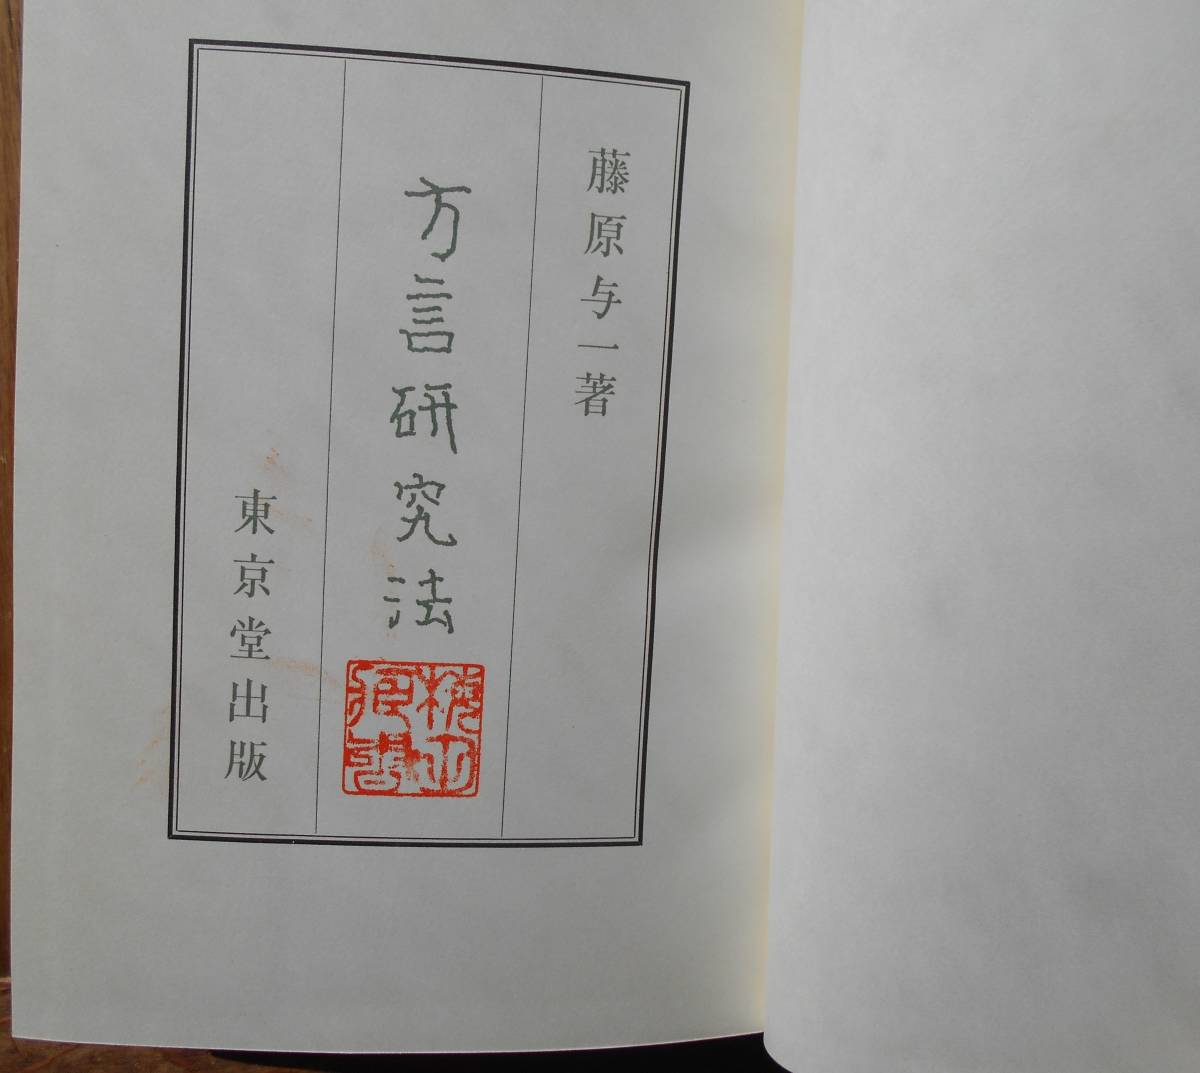 藤原与一著
方言研究法
東京堂出版